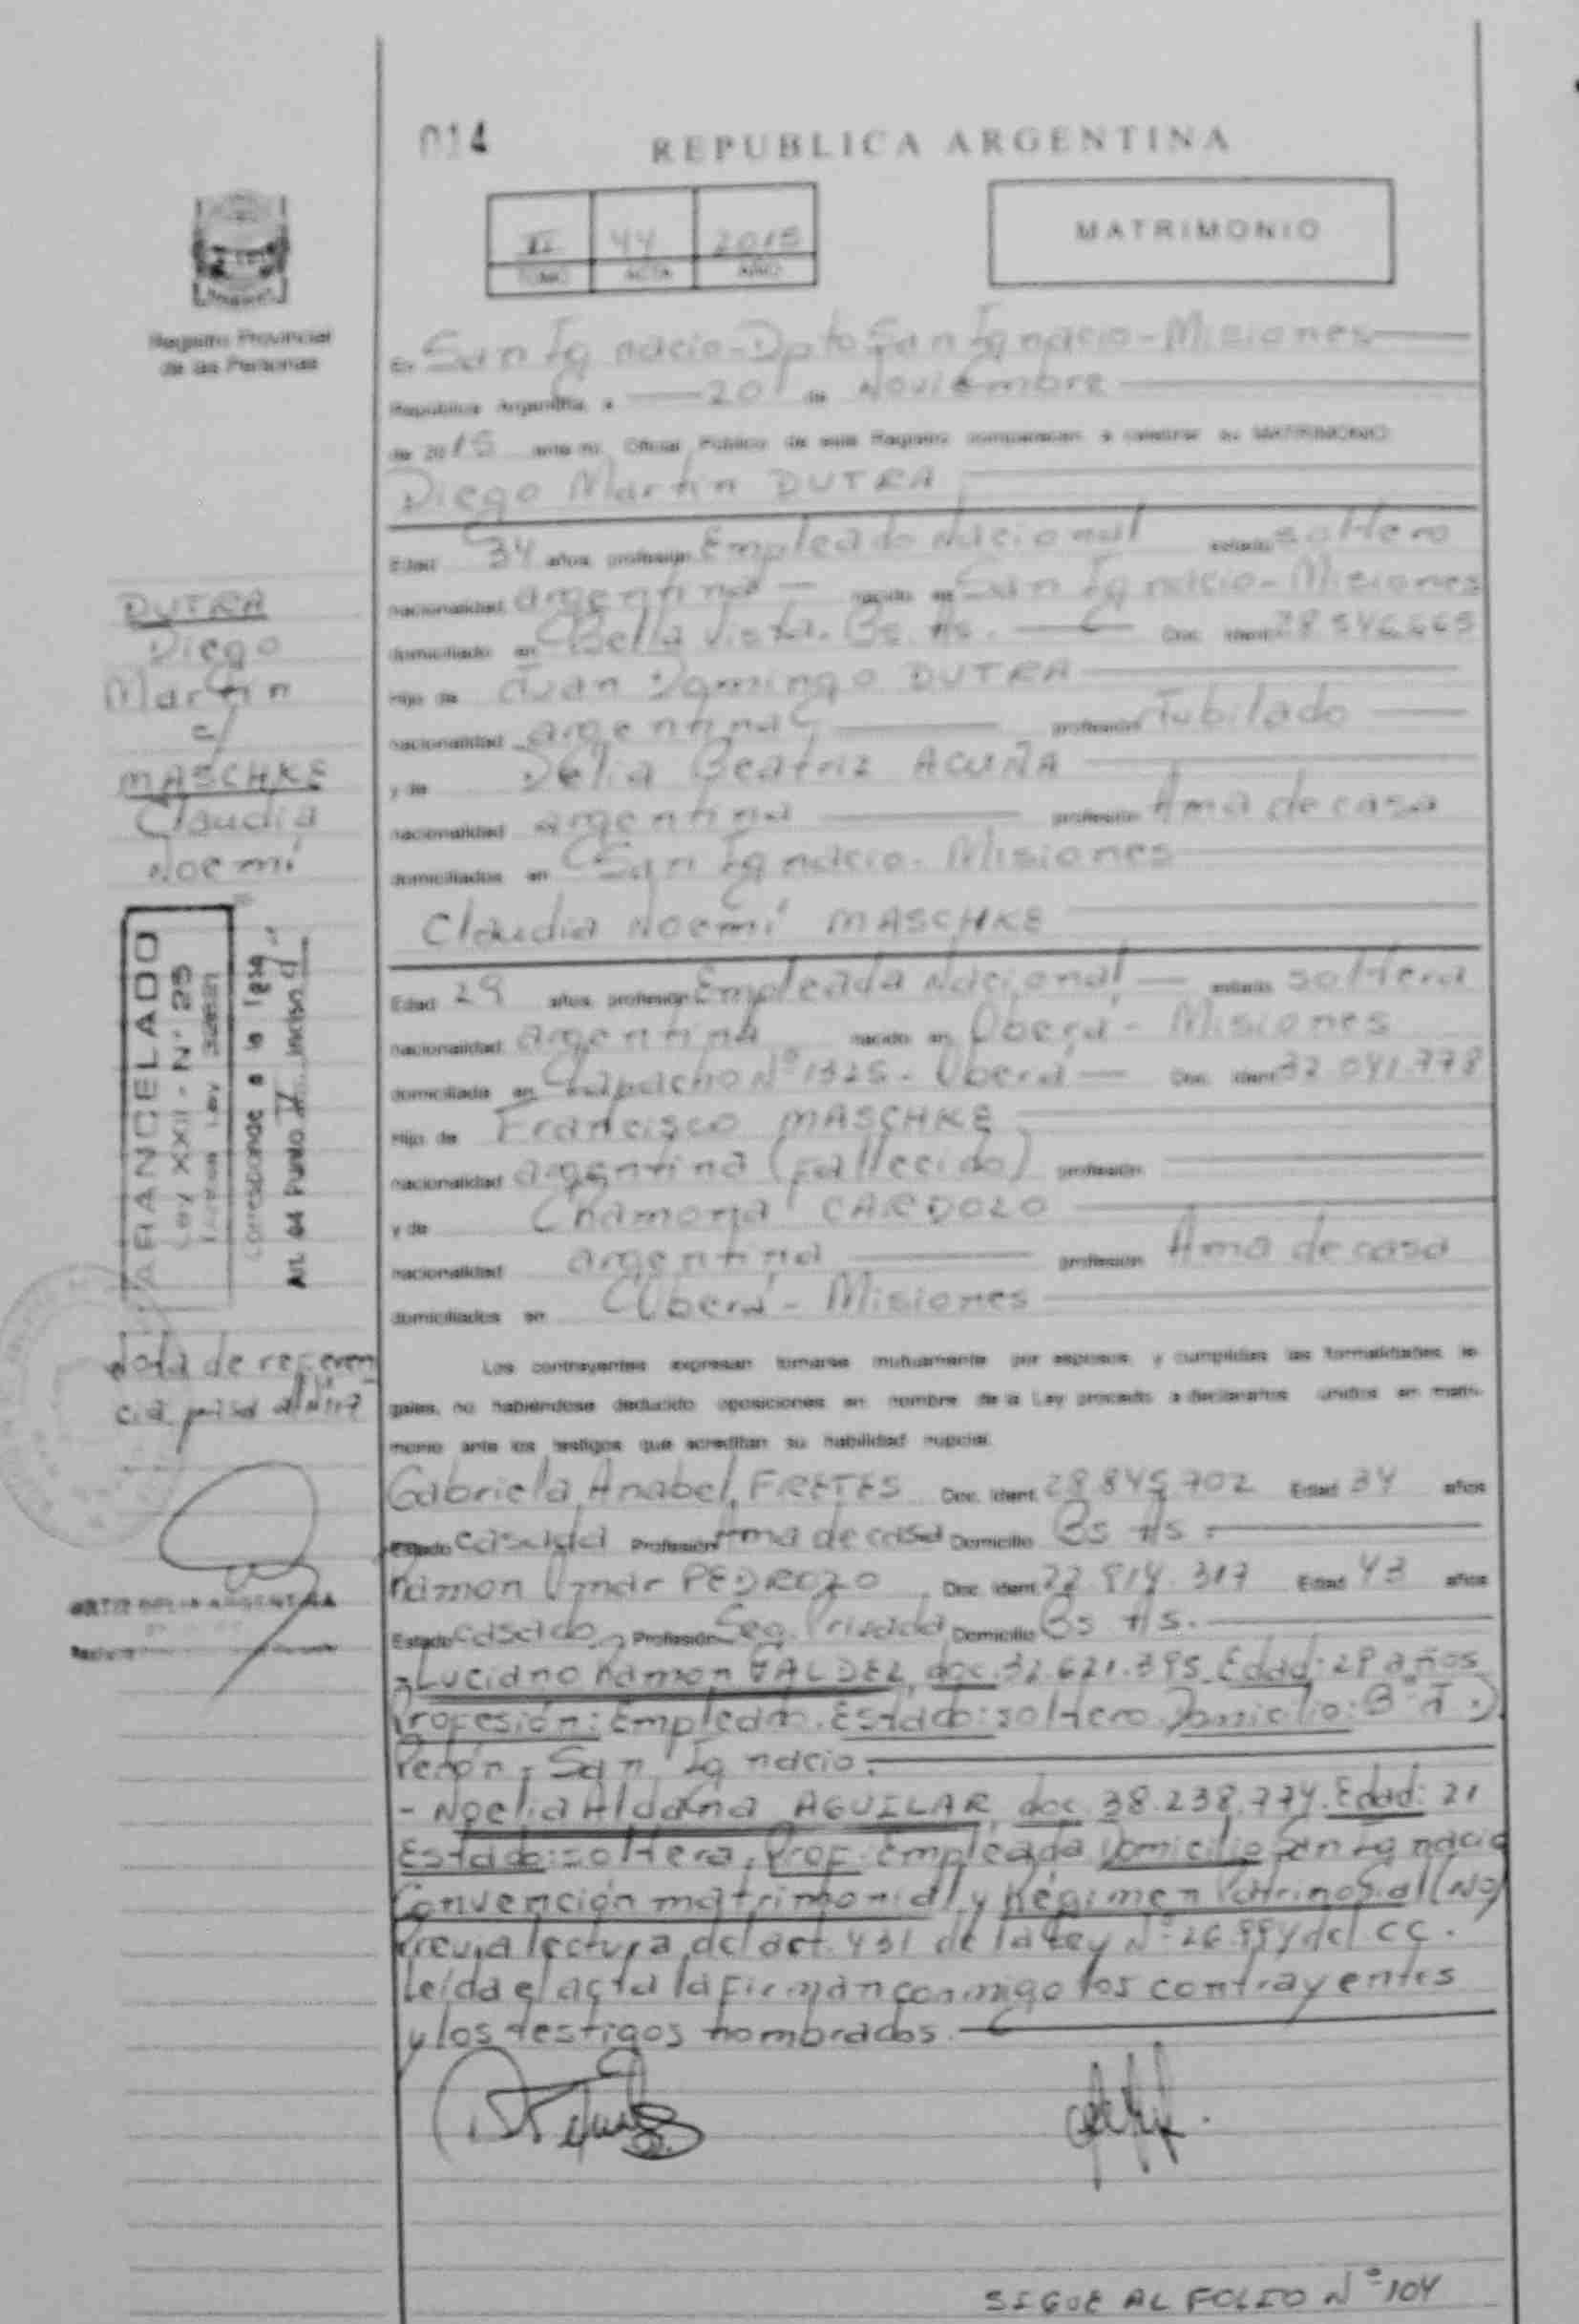 014
REPUBLICA ARGENTINA
II 44 2015
TOMO ACTA AÑO
MATRIMONIO
Registro Provincial
de las Personas
En San Ignacio - Dpto San Ignacio - Misiones
República Argentina, a 20 de Noviembre
de 2015 ante mí, Oficial Público de este Registro comparecen a celebrar su MATRIMONIO:
Diego Martín DUTRA
Edad 34 años, profesión Empleado Nacional estado soltero
nacionalidad argentina nacido en San Ignacio - Misiones
domiciliado en Bella Vista. Bs. As. Doc. Ident. 28.546.665
Hijo de Juan Domingo DUTRA
nacionalidad argentina profesión Jubilado
y de Delia Beatriz ACUÑA
nacionalidad argentina profesión Ama de casa
domiciliados en San Ignacio. Misiones
Claudia Noemí MASCHKE
Edad 29 años, profesión Empleada Nacional estado soltera
nacionalidad argentina nacido en Oberá - Misiones
domiciliada en Lapacho Nº 1325 - Oberá Doc. Ident. 32.041.778
Hijo de Francisco MASCHKE
nacionalidad argentina (Fallecido) profesión
y de CARDOZO
nacionalidad argentina profesión Ama de casa
domiciliados en Oberá - Misiones
Los contrayentes expresan tomarse mutuamente por esposos, y cumplidas las formalidades le-
gales, no habiéndose deducido oposiciones en nombre de la Ley procedo a declararlos unidos en matri-
monio ante los testigos que acreditan su habilidad nupcial.
Gabriela Anabel FRETES Doc. Ident. 28.845.702 Edad 34 años
Estado casada Profesión Ama de casa Domicilio Bs As.
Ramon Omar PEDROZO Doc. Ident. 22.914.317 Edad 43 años
Estado casado Profesión Seg. Privada Domicilio Bs As.
- Luciano Ramon VALDEZ, doc. 32.621.395 Edad: 29 años
Profesión: Empleado. Estado: soltero. Domicilio: Bº J.D.
Perón - San Ignacio.
- Noelia Aldana AGUILAR, doc. 38.238.774. Edad: 21
Estado: soltera. Prof. Empleada Domicilio San Ignacio
Convención matrimonial y Régimen Patrimonial (NO)
Previa lectura del art. 431 de la Ley Nº 26.994 del CC.
Leída el acta la firman conmigo los contrayentes
y los testigos nombrados.
SIGUE AL FOLIO Nº 104
DUTRA
Diego
Martín
c/
MASCHKE
Claudia
Noemí
ARANCELADO
Ley XXII - Nº 25
Corresponde a la Tasa
Art. 64 Punto II inciso d
Nota de referen
cia pasa al Nº 117
ORTIZ DELIA ARGENTINA